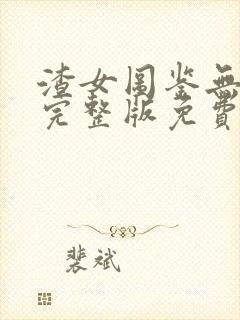 渣女图鉴無
完整版免費
裴斌